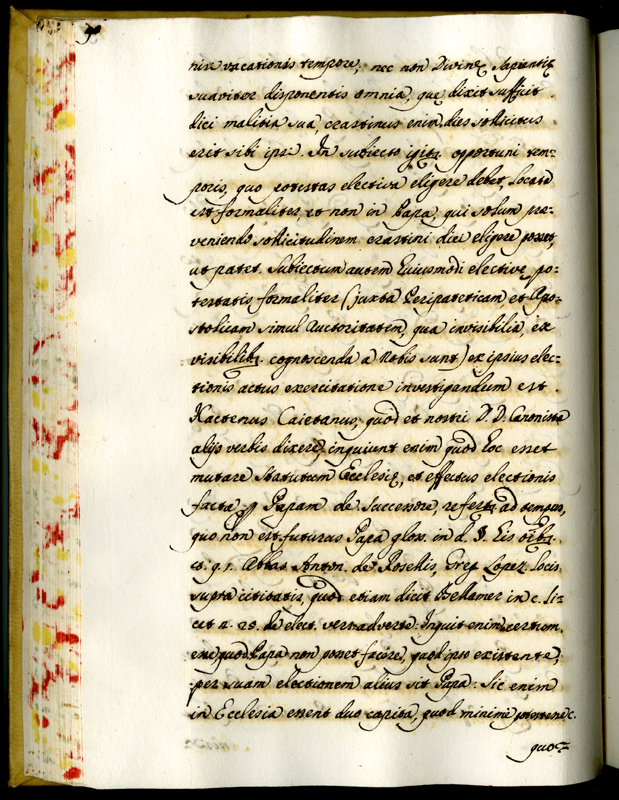 niæ vacationis tempore, nec non Divinę Sapientię
suaviter disponentis omnia, quę dixit sufficit
diei malitia sua, crastinus enim dies sollicitus
erit sibi ipsi. In subiecto igitr. opportuni tem-
poris, quo potestas electiva eligere debet, locata
est formaliter, et non in Papa, qui solum præ-
veniendo sollicitudinem crastini diei eligere posset,
ut patet. Subiectum autem huiusmodi electivę po-
testatis formaliter (juxta Peripateticam et Apo-
stolicam simul Auctoritatem, qua invisibilia, ex
visibilib. cognoscenda a Nobis sunt) ex ipsius elec-
tionis actus exercitatione investigandum est.
Hactenus Caietanus, quod et nostri D. D. Canonistæ
alijs verbis dixere, inquiunt enim quod hoc esset
mutare Statutum Ecclesię, et effectus electionis
facta p Papam de Successore, refertr. ad tempus,
quo non est futurus Papa glos. in d. §. His oib.
et q. 1. Abbas Anton. de Rosellis, Greg. Lopez locis
supra citatis, quod etiam dicit Bellamer in c. li-
cet n. 25. de elect. vers. adverte: Inquit enim, certum
esse quod Papa non posset facere, quod ipso existente,
per suam electionem alius sit Papa: Sic enim
in Ecclesia essent duo capita, quod minimè potest
quo-